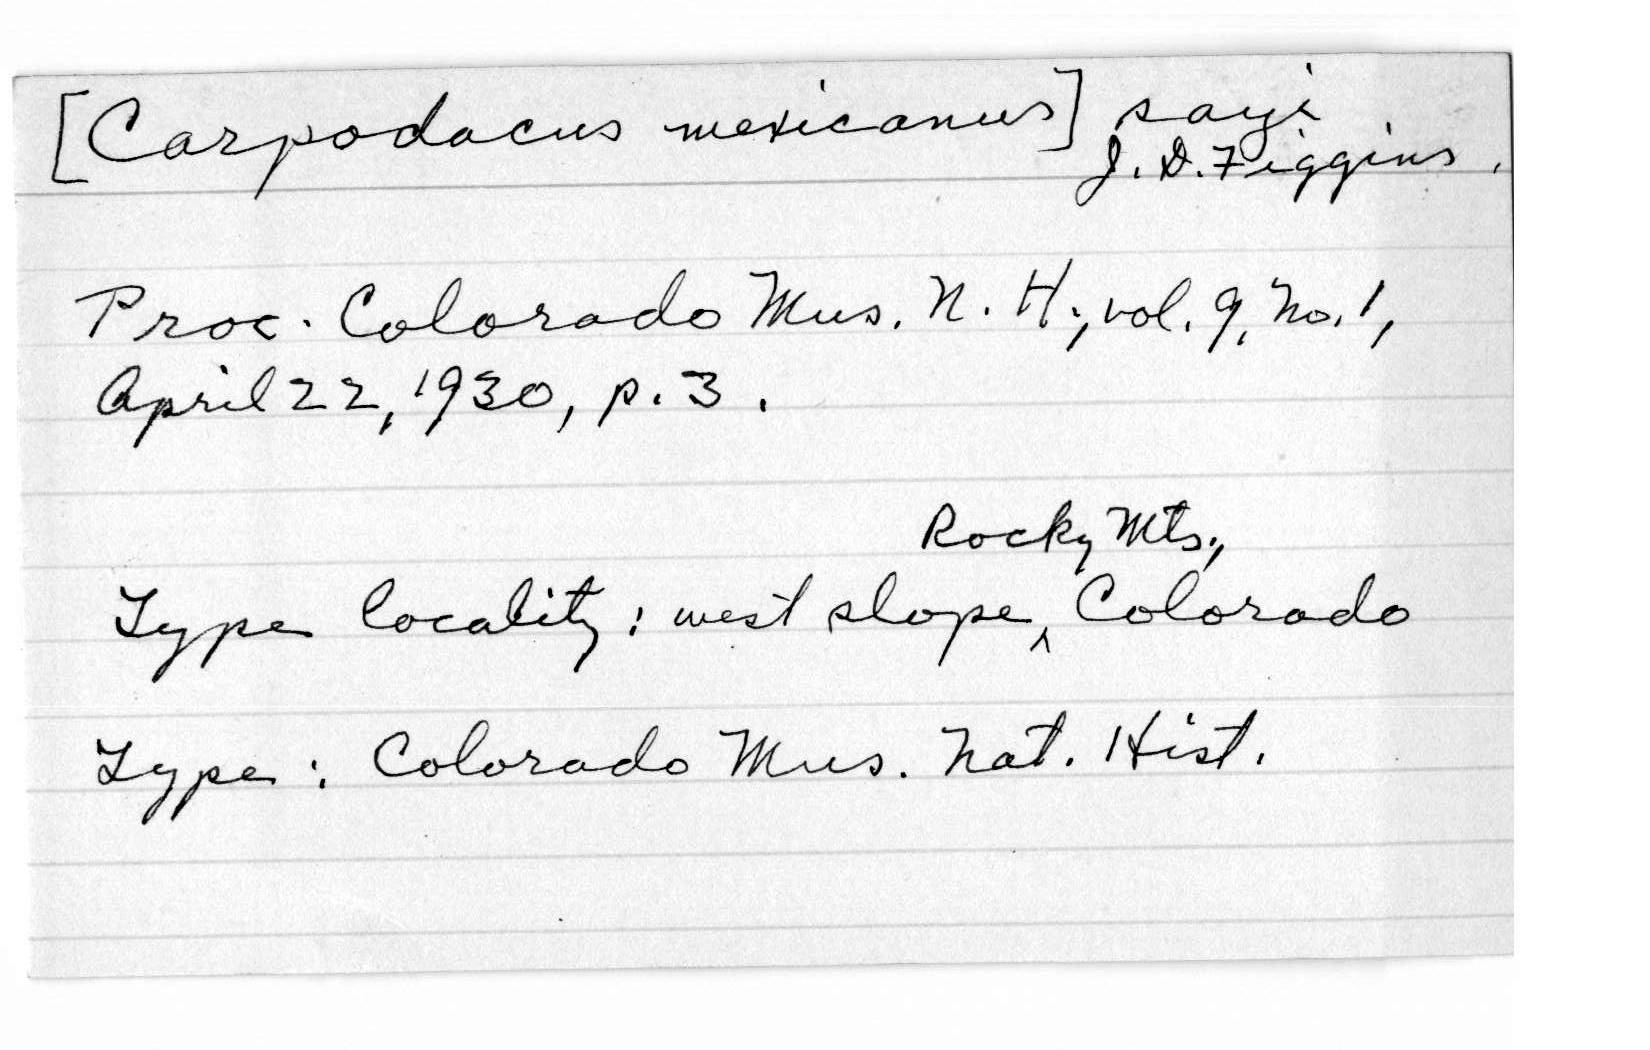 [Carpodacus mexicanus] sayi
J. D. Figgins.
Proc. Colorado Mus. N. H., vol. 9, No. 1,
April 22, 1930, p. 3.
Rocky Mts.,
Type locality: west slope, ^ Colorado
Type: Colorado Mus. Nat. Hist.